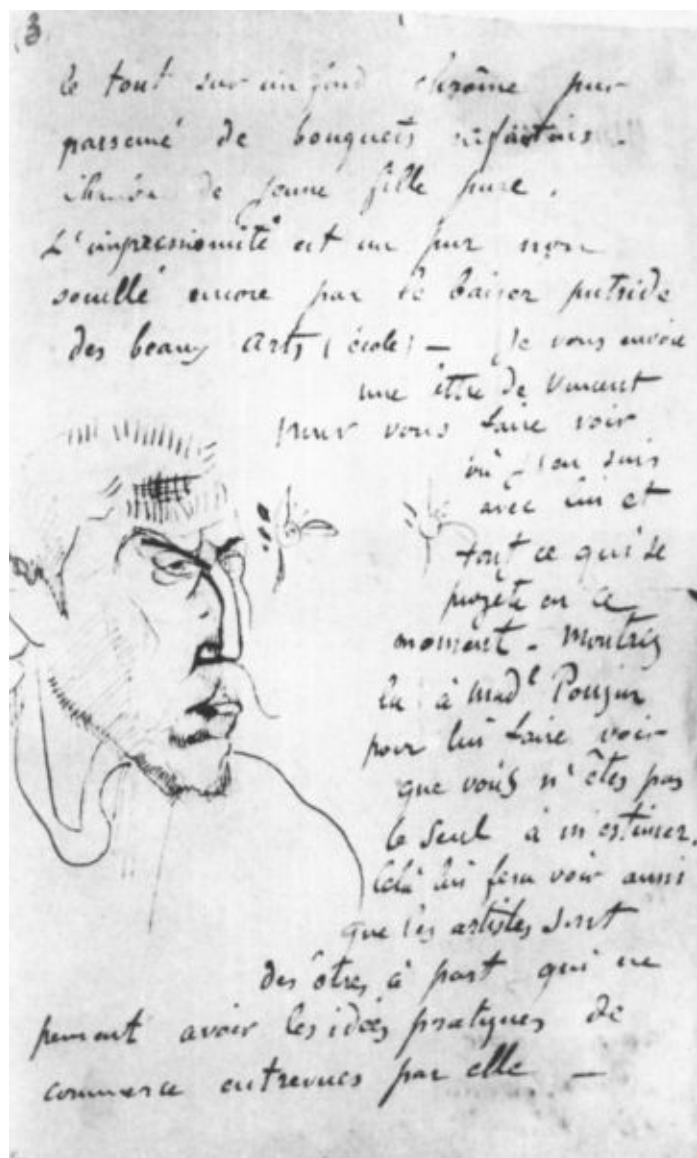 3
le tout sur un fond chrôme pur
parsemé de bouquets enfantins.
Chambre de jeune fille pure.
L'impressionniste est un pur non
souillé encore par le baiser putride
des beaux arts (école) — Je vous envoie
une lettre de Vincent
pour vous faire voir
où j'en suis
avec lui et
tout ce qui se
projete en ce
moment. Montrez
la à Mad.e
pour lui faire voir
que vous n'êtes pas
le seul à m'estimer.
Celà lui fera voir aussi
que les artistes sont
des êtres à part qui ne
peuvent avoir les idées pratiques de
commerce entrevues par elle —